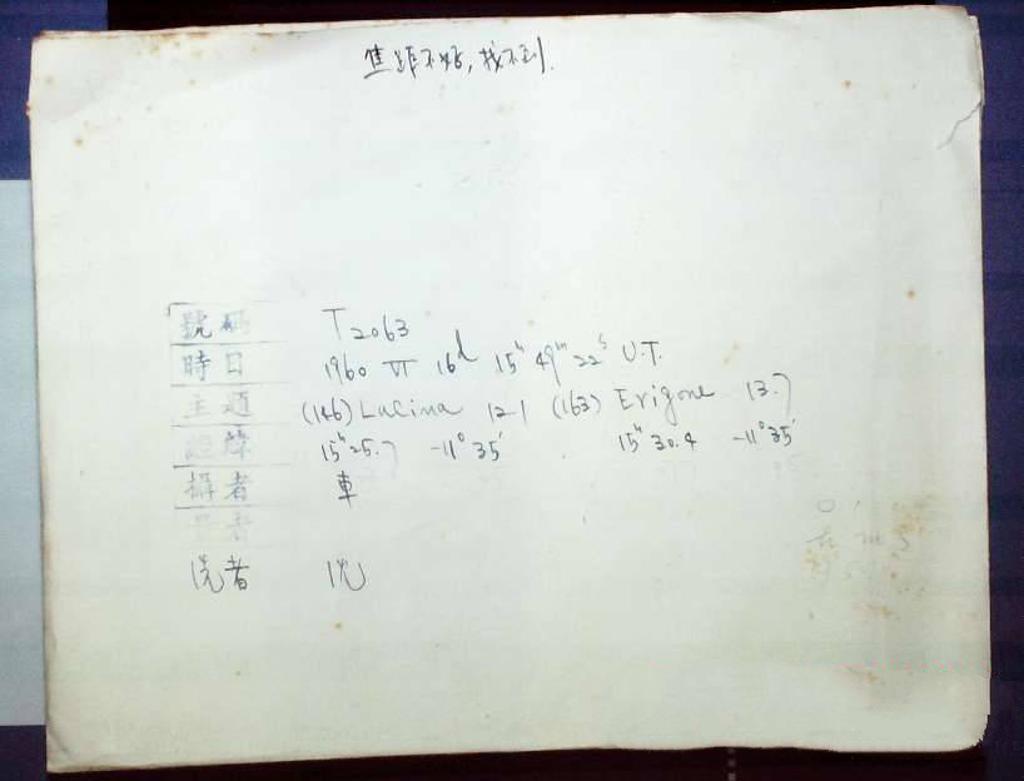 焦距不好,找不到.
號碼 T2063
時日 1960 VI 16d 15h 49m 22s U.T.
主題 (146) Lucina 12.1 (163) Erigone 13.7
15h 25.7 -11° 35' 15h 30.4 -11° 35'
攝者 車
洗者 沈